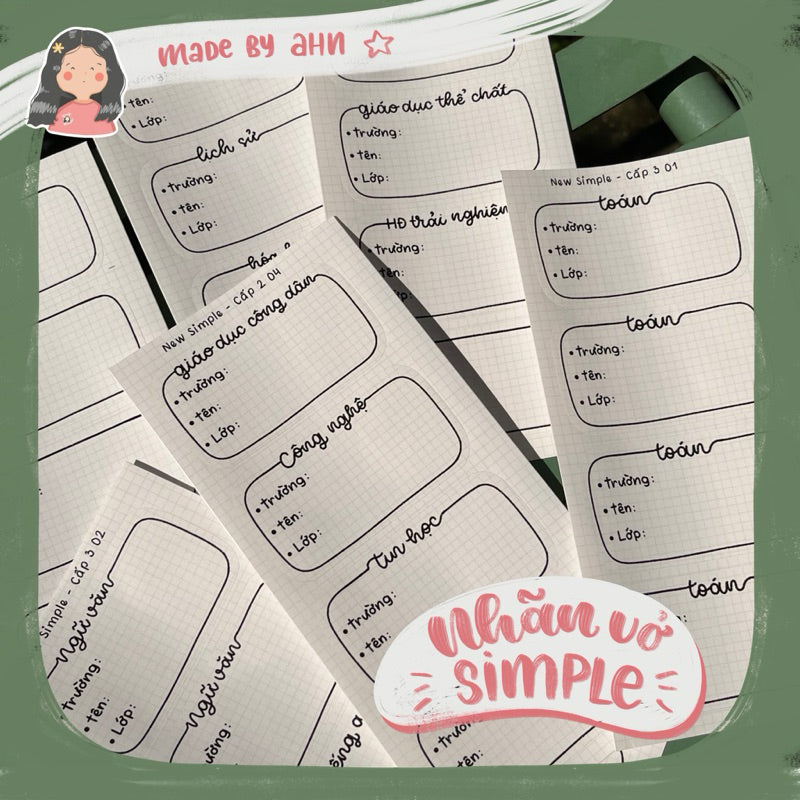 MADE BY AHN
• Tên:
• Lớp:
lịch sử
• Trường:
• Tên:
• Lớp:
giáo dục thể chất
• Trường:
• Tên:
• Lớp:
HĐ trải nghiệm
• Trường:
New Simple - Cấp 3 01
toán
• Trường:
• Tên:
• Lớp:
toán
• Trường:
• Tên:
• Lớp:
toán
• Trường:
• Tên:
• Lớp:
toán
New Simple - Cấp 2 04
giáo dục công dân
• Trường:
• Tên:
• Lớp:
Công nghệ
• Trường:
• Tên:
• Lớp:
tin học
• Trường:
• Tên:
Simple - Cấp 3 02
Ngữ văn
• Trường:
• Tên:
• Lớp:
Ngữ văn
Nhãn vở
SIMPLE